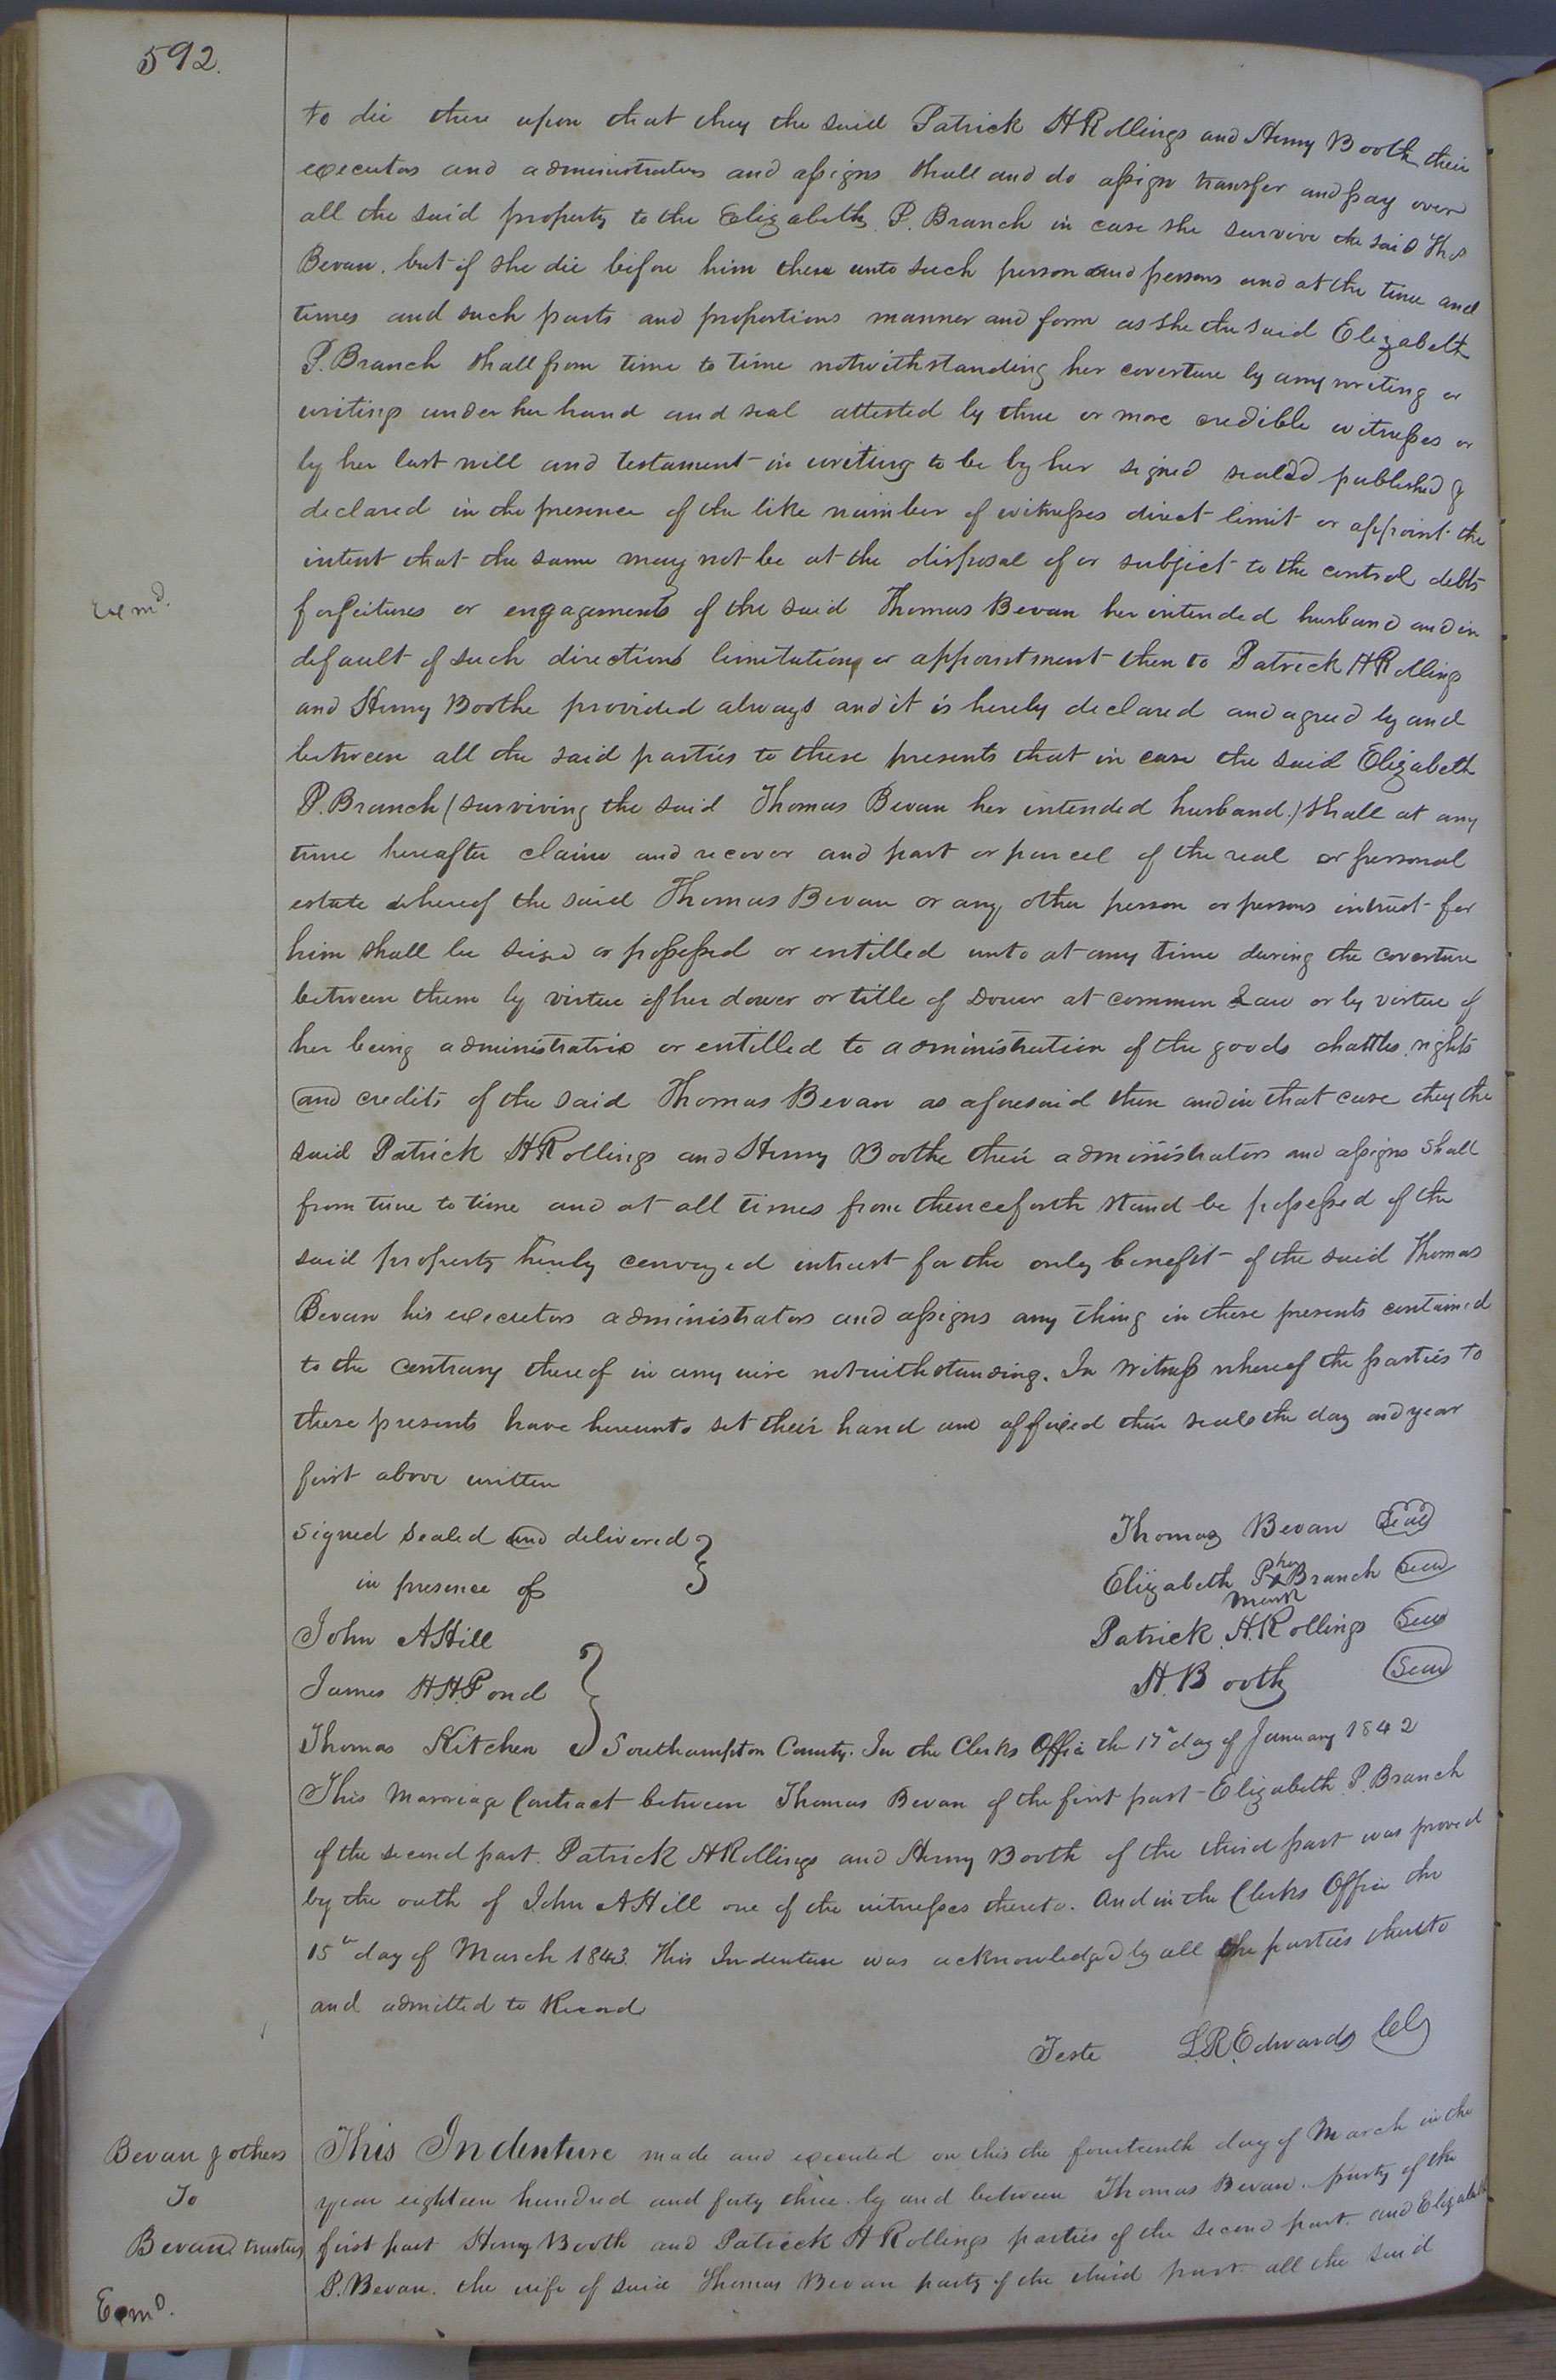 592.
to die there upon that they the said Patrick H Rollings and Henry Booth their
executors and administrators and assigns shall and do assign transfer and pay over
all the said property to the Elizabeth P. Branch in case she survive the said Thos
Bevan. but if she die before him then unto such person and persons and at the time and
times and such parts and proportions manner and form as she the said Elizabeth
P. Branch shall from time to time notwithstanding her coverture by any writing or
writings under her hand and seal attested by three or more credible witnesses or
by her last will and testament in writing to be by her signed sealed published &
declared in the presence of the like number of witnesses direct limit or appoint the
intent that the same may not be at the disposal of or subject to the control debts
Exmd.
forfeitures or engagements of the said Thomas Bevan her intended husband and in
default of such directions limitations or appointment then to Patrick H Rollings
and Henry Boothe provided always and it is hereby declared and agreed by and
between all the said parties to these presents that in case the said Elizabeth
P. Branch (surviving the said Thomas Bevan her intended husband.) shall at any
time hereafter claim and recover and part or parcel of the real or personal
estate whereof the said Thomas Bevan or any other person or persons intrust for
him shall be seized or possessed or entitled unto at any time during the coverture
between them by virtue of her dower or title of Dower at common Law or by virtue of
her being administratrix or entitled to administration of the goods chattles rights
and credits of the said Thomas Bevan as aforesaid then and in that case they the
said Patrick H Rollings and Henry Boothe their administrators and assigns shall
from time to time and at all times from thenceforth stand be possessed of the
said property hereby conveyed intrust for the only benefit of the said Thomas
Bevan his executors administrators and assigns any thing in these presents contained
to the contrary thereof in any wise notwithstanding. In Witness whereof the parties to
these presents have hereunto set their hand and affixed their seals the day and year
first above written
Signed Sealed and delivered
in presence of
John A Hill
James H.H. Pond
Thomas Kitchen
Thomas Bevan Seal
Elizabeth P. her X mark Branch Seal
Patrick H. Rollings Seal
H. Booth Seal
Southampton County. In the Clerks Office the 17th day of January 1842
This Marriage Contract between Thomas Bevan of the first part Elizabeth P. Branch
of the second part. Patrick H Rollings and Henry Booth of the third part was proved
by the oath of John A Hill one of the witnesses thereto. And in the Clerks Office the
15th day of March 1843. This Indenture was acknowledged by all the parties thereto
and admitted to Record
Teste L.R. Edwards Clk
Bevan & others
To
Bevans trustees
Exmd.
This Indenture made and executed on this the fourteenth day of March in the
year eighteen hundred and forty three by and between Thomas Bevan. party of the
first part Henry Booth and Patrick H Rollings parties of the second part. and Elizabeth
P. Bevan. the wife of said Thomas Bevan party of the third part all the said